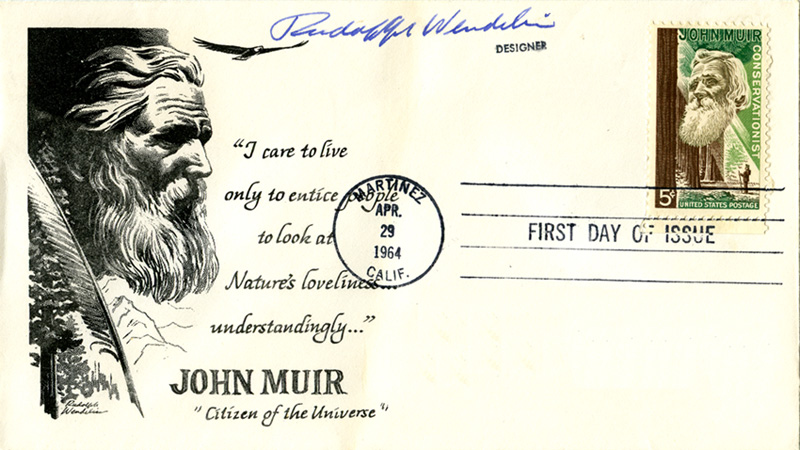 Rudolph Wendelin
DESIGNER
JOHN MUIR
CONSERVATIONIST
5¢
UNITED STATES POSTAGE
"I care to live
only to entice people
to look at
Nature's loveliness...
understandingly..."
MARTINEZ
APR.
29
1964
CALIF.
FIRST DAY OF ISSUE
JOHN MUIR
"Citizen of the Universe"
Rudolph
Wendelin